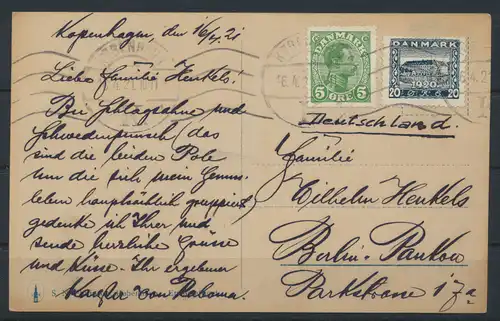 Kopenhagen, den 16/4. 21
Liebe Familie Henkels!
Bei Schlagsahne und
Schwedenpunsch, das
sind die beiden Pole
um die sich mein Genuss-
leben hauptsächlich gruppiert
gedenke ich Ihrer und
sende herzliche Grüsse
und Küsse. Ihr ergebener
Kanzler von
DANMARK
5 ØRE 5
DANMARK
1920
20 20
Deutschland.
Familie
Wilhelm Henkels
Berlin-Pankow
Parkstrasse 17a